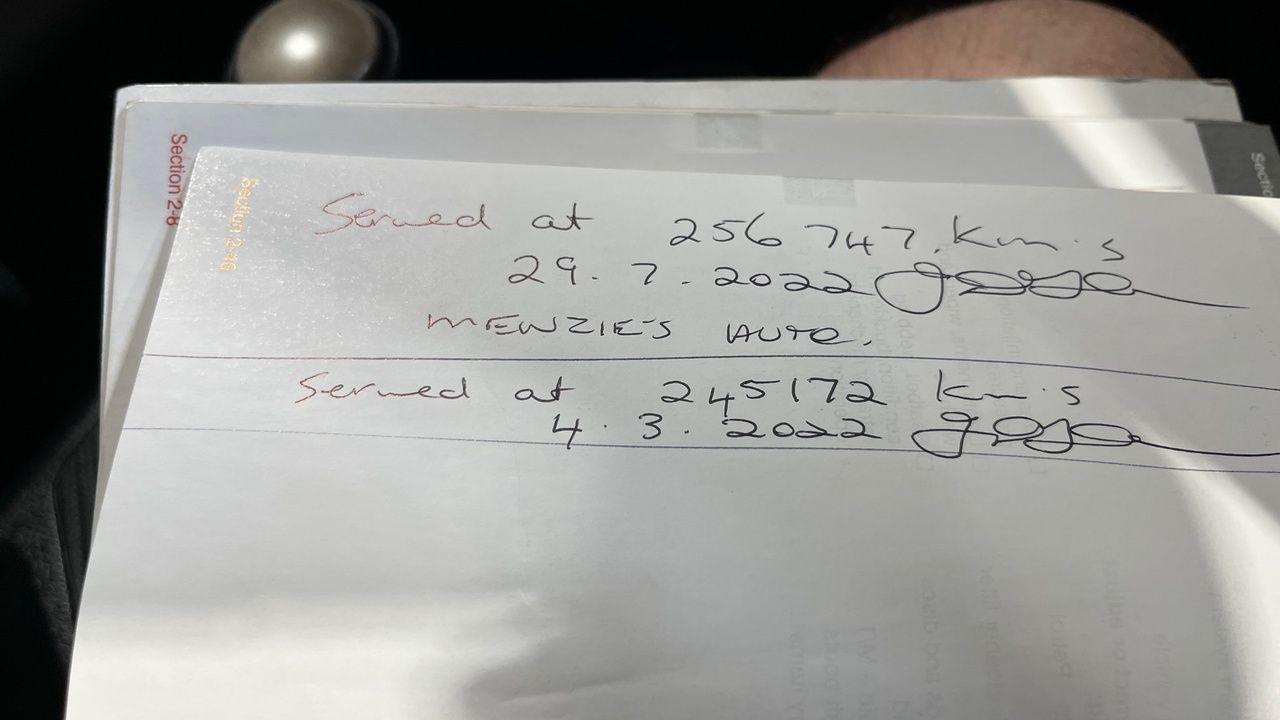 Section 2-8
Section 2-46
Sectio
Serviced at 256 747. Km's
29. 7. 2022
MENZIE'S AUTO.
Serviced at 245172 km's
4. 3. 2022